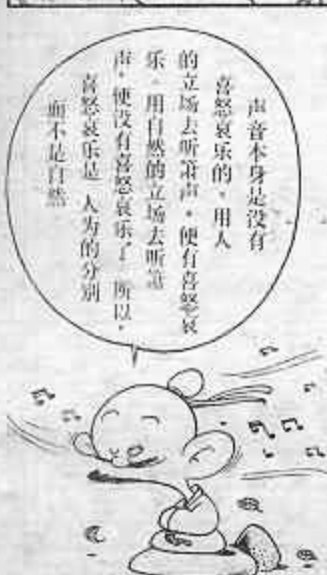 声音本身是没有
喜怒哀乐的。用人
的立场去听箫声，便有喜怒哀
乐。用自然的立场去听箫
声，便没有喜怒哀乐了。所以，
喜怒哀乐是人为的分别
而不是自然